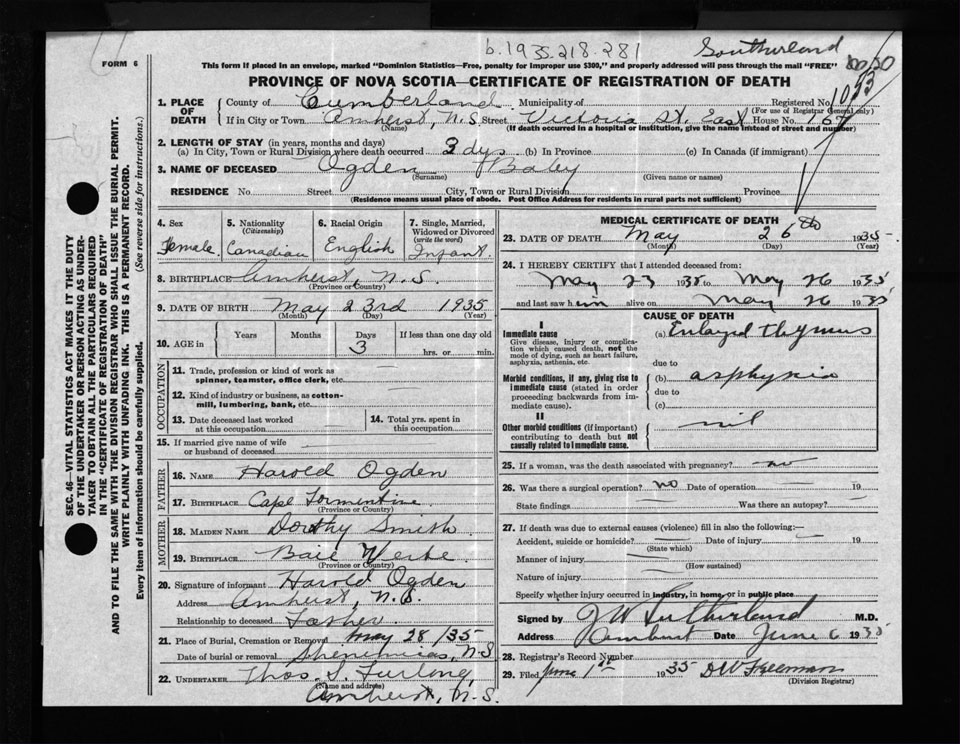 b.1935.218.281
Southerland
FORM 6
This form if placed in an envelope, marked "Dominion Statistics—Free, penalty for improper use $300," and properly addressed will pass through the mail "FREE"
PROVINCE OF NOVA SCOTIA—CERTIFICATE OF REGISTRATION OF DEATH
1. PLACE OF DEATH
County of Cumberland Municipality of Registered No. 1053
(For use of Registrar General only)
If in City or Town Amherst, N.S. Street Victoria St. East House No. 167
(Name) (If death occurred in a hospital or institution, give the name instead of street and number)
2. LENGTH OF STAY (in years, months and days)
(a) In City, Town or Rural Division where death occurred 3 dys (b) In Province (c) In Canada (if immigrant)
3. NAME OF DECEASED Ogden Baby
(Surname) (Given name or names)
RESIDENCE No. Street City, Town or Rural Division Province
(Residence means usual place of abode. Post Office Address for residents in rural parts not sufficient)
4. Sex Female
5. Nationality (Citizenship) Canadian
6. Racial Origin English
7. Single, Married, Widowed or Divorced (write the word) Infant
8. BIRTHPLACE Amherst, N.S.
(Province or Country)
9. DATE OF BIRTH May 23rd 1935
(Month) (Day) (Year)
10. AGE in Years Months Days 3 If less than one day old hrs. or min.
OCCUPATION
11. Trade, profession or kind of work as spinner, teamster, office clerk, etc.
12. Kind of industry or business, as cotton-mill, lumbering, bank, etc.
13. Date deceased last worked at this occupation
14. Total yrs. spent in this occupation
15. If married give name of wife or husband of deceased
FATHER
16. NAME Harold Ogden
17. BIRTHPLACE Cape Tormentine
(Province or Country)
MOTHER
18. MAIDEN NAME Dorothy Smith
19. BIRTHPLACE Baie Verte
(Province or Country)
20. Signature of informant Harold Ogden
Address Amherst, N.S.
Relationship to deceased Father
21. Place of Burial, Cremation or Removal May 28/35
Date of burial or removal Shenemicas, N.S
22. UNDERTAKER Thos. S. Furlong
(Name and address)
Amherst, N.S.
MEDICAL CERTIFICATE OF DEATH
23. DATE OF DEATH May 26th 1935
(Month) (Day) (Year)
24. I HEREBY CERTIFY that I attended deceased from:
May 23 1935 to May 26 1935
and last saw him alive on May 26 1935
CAUSE OF DEATH
I
Immediate cause
Give disease, injury or complication which caused death, not the mode of dying, such as heart failure, asphyxia, asthenia, etc.
(a) Enlarged thymus
due to
Morbid conditions, if any, giving rise to immediate cause (stated in order proceeding backwards from immediate cause).
(b) asphyxia
due to
(c)
II
Other morbid conditions (if important) contributing to death but not causally related to immediate cause.
nil
25. If a woman, was the death associated with pregnancy? no
26. Was there a surgical operation? no Date of operation 19
State findings Was there an autopsy?
27. If death was due to external causes (violence) fill in also the following:—
Accident, suicide or homicide? Date of injury 19
(State which)
Manner of injury
(How sustained)
Nature of injury
Specify whether injury occurred in industry, in home, or in public place
Signed by J W Sutherland M.D.
Address Amherst Date June 6 1935
28. Registrar's Record Number
29. Filed June 1st 1935 DW Freeman
(Division Registrar)
SEC. 46—VITAL STATISTICS ACT MAKES IT THE DUTY
OF THE UNDERTAKER OR PERSON ACTING AS UNDER-
TAKER TO OBTAIN ALL THE PARTICULARS REQUIRED
IN THE "CERTIFICATE OF REGISTRATION OF DEATH"
AND TO FILE THE SAME WITH THE DIVISION REGISTRAR WHO SHALL ISSUE THE BURIAL PERMIT.
WRITE PLAINLY WITH UNFADING INK. THIS IS A PERMANENT RECORD.
Every item of information should be carefully supplied. (See reverse side for instructions.)